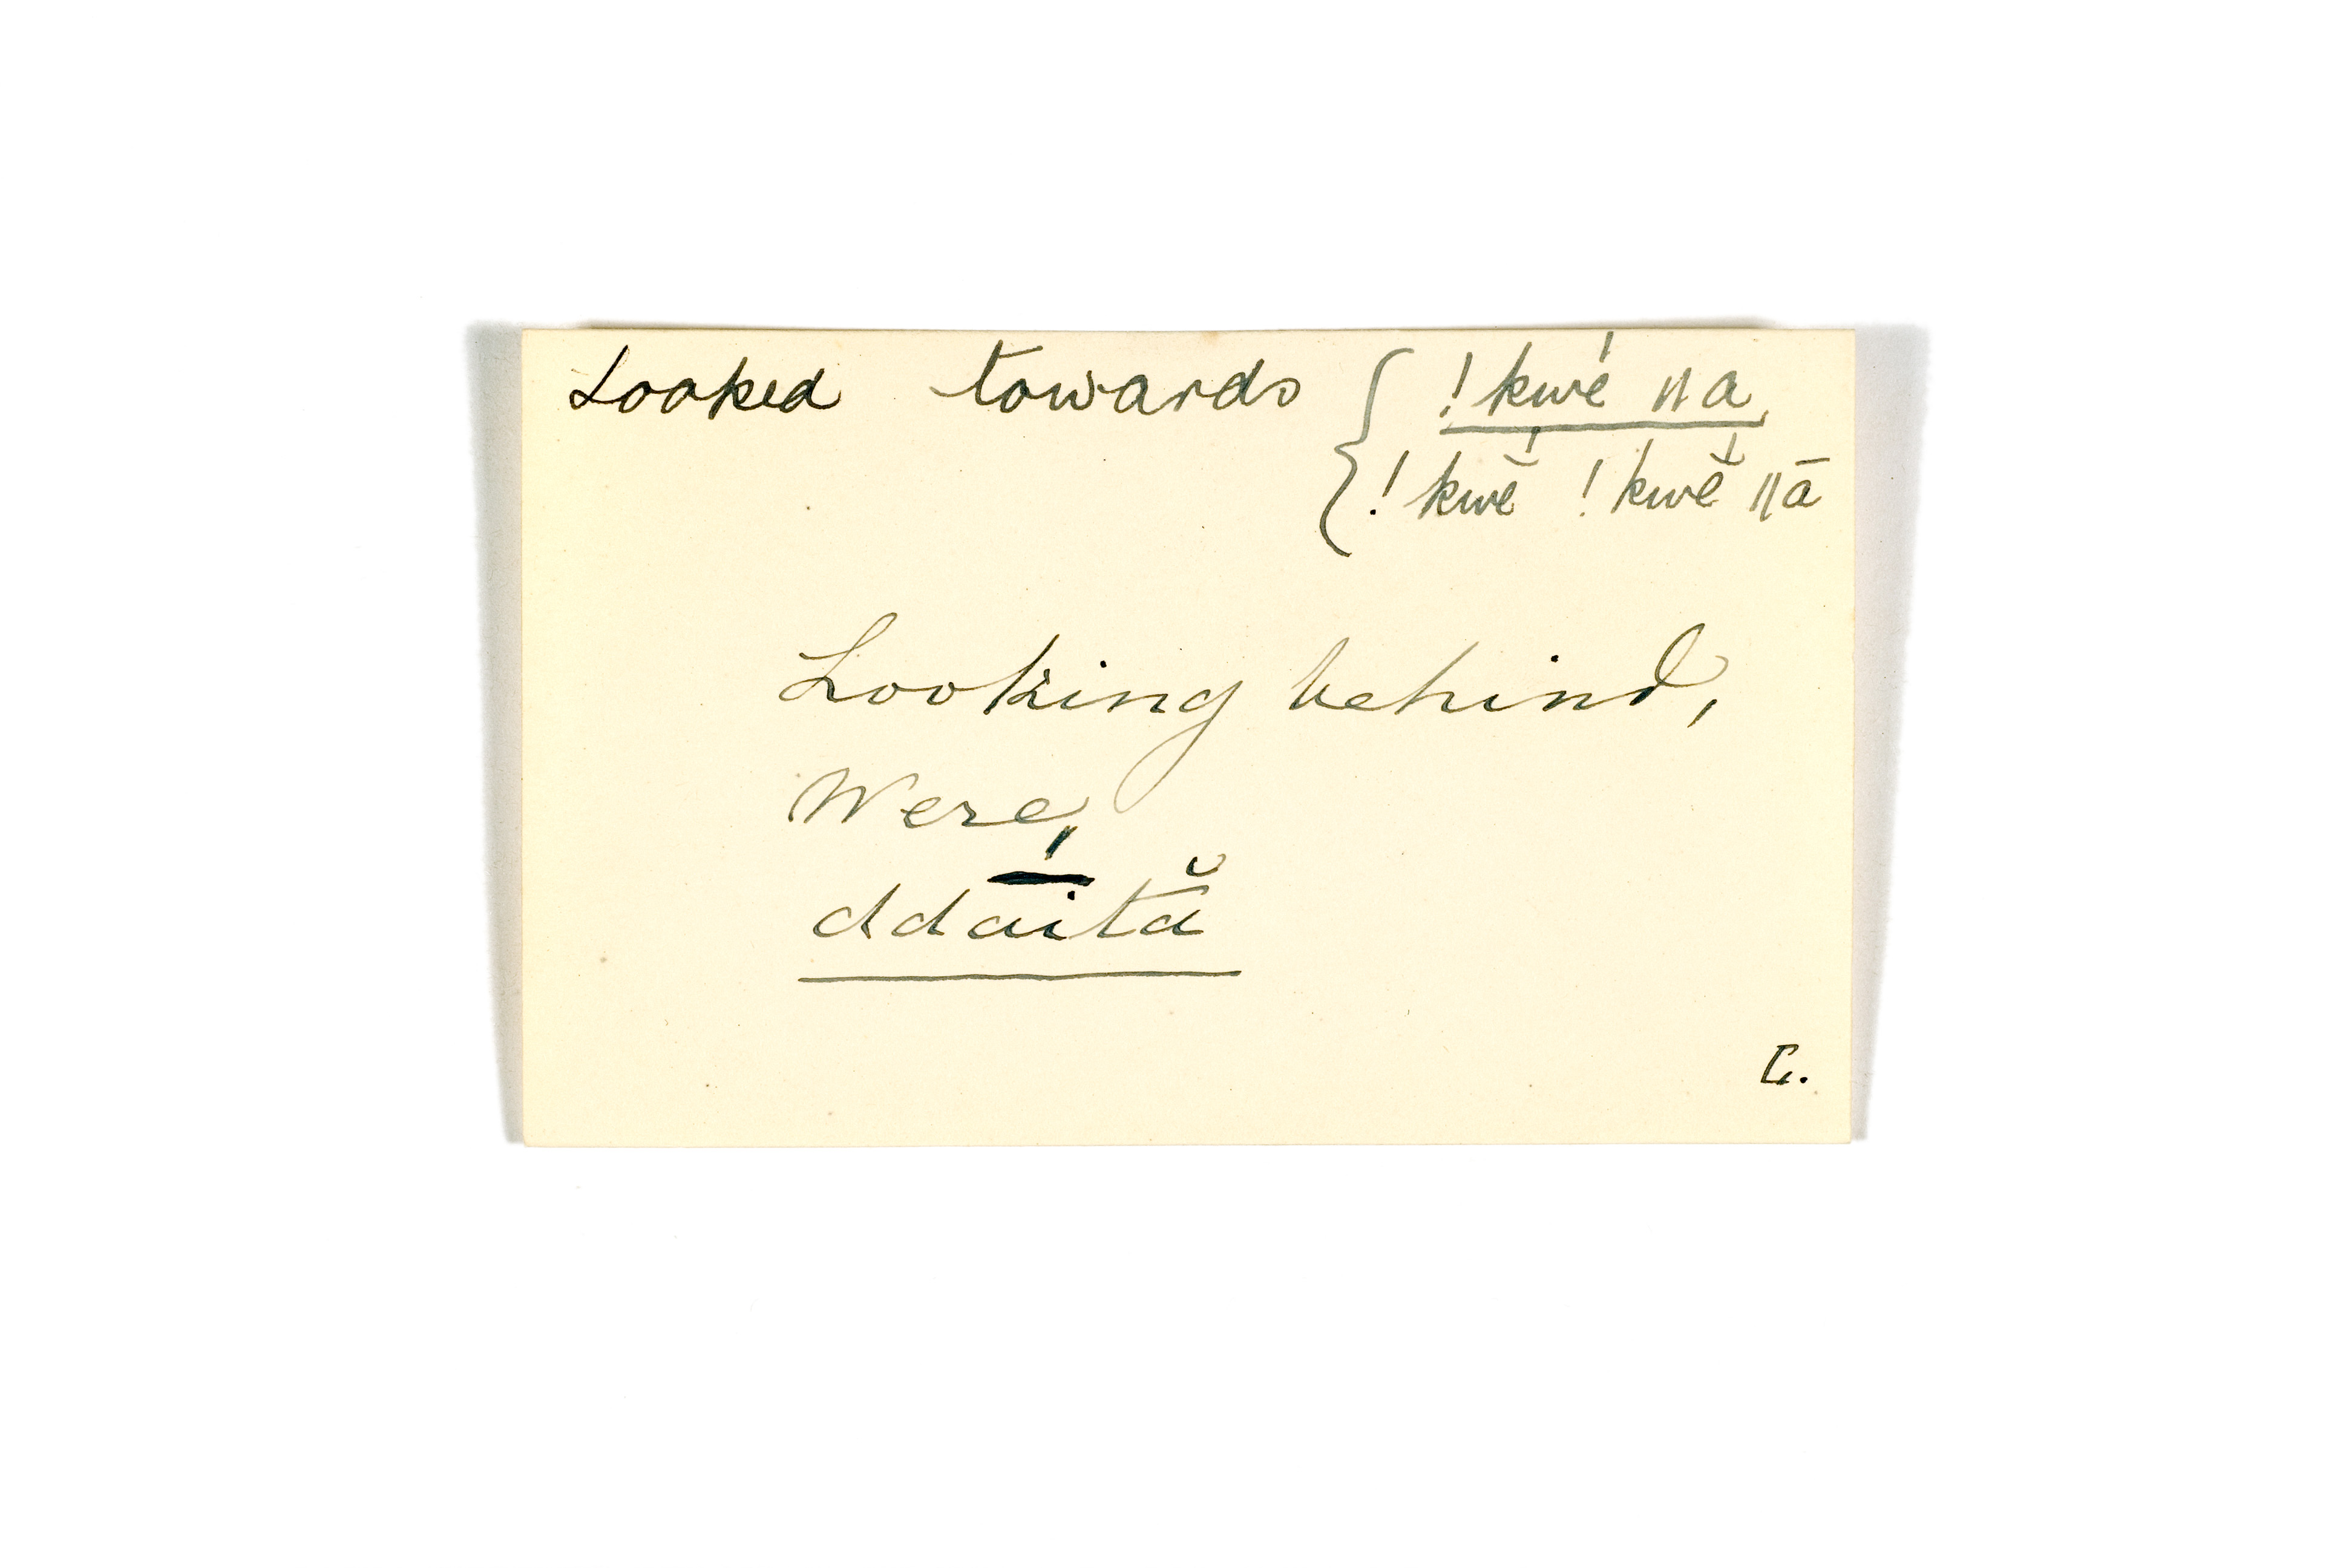 Looked towards { !kwé ǁa,
!kwĕ́ !kwĕ́ ǁā
Looking behind,
Were,
ddaitā̆
C.